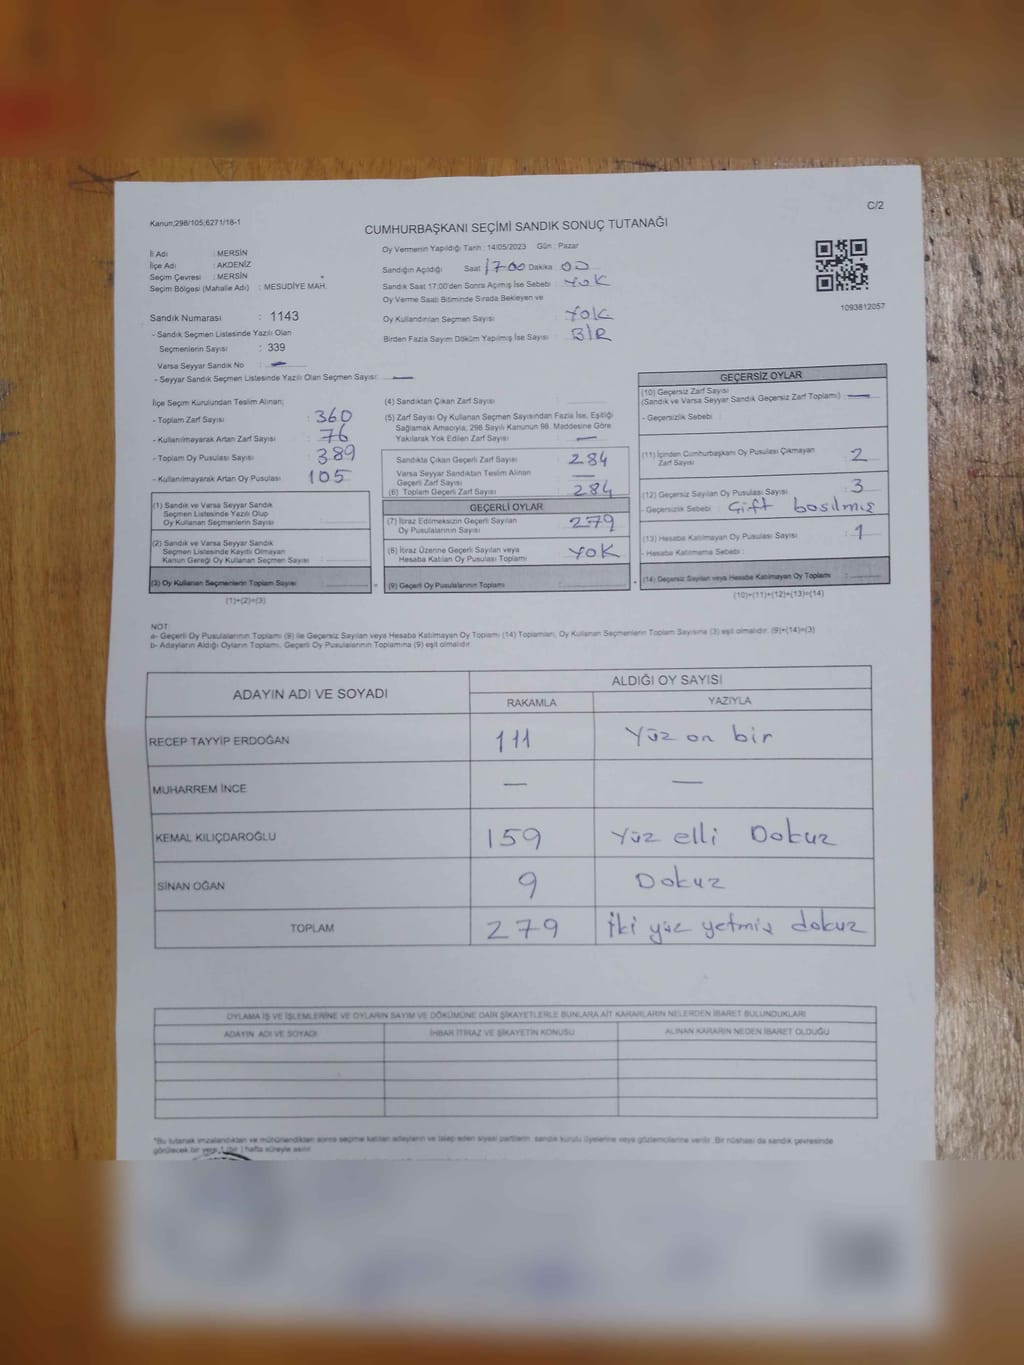 C/2
Kanun;298/105;6271/18-1
CUMHURBAŞKANI SEÇİMİ SANDIK SONUÇ TUTANAĞI
İl Adı : MERSİN
İlçe Adı : AKDENİZ
Seçim Çevresi : MERSİN
Seçim Bölgesi (Mahalle Adı) : MESUDİYE MAH.
Sandık Numarası : 1143
- Sandık Seçmen Listesinde Yazılı Olan
Seçmenlerin Sayısı : 339
Varsa Seyyar Sandık No : —
- Seyyar Sandık Seçmen Listesinde Yazılı Olan Seçmen Sayısı: —
Oy Vermenin Yapıldığı Tarih : 14/05/2023 Gün : Pazar
Sandığın Açıldığı Saat 17:00 Dakika : 00
Sandık Saat 17:00'den Sonra Açılmış İse Sebebi : YOK
Oy Verme Saati Bitiminde Sırada Bekleyen ve
Oy Kullandırılan Seçmen Sayısı : YOK
Birden Fazla Sayım Döküm Yapılmış İse Sayısı : BİR
1093812057
İlçe Seçim Kurulundan Teslim Alınan;
- Toplam Zarf Sayısı : 360
- Kullanılmayarak Artan Zarf Sayısı : 76
- Toplam Oy Pusulası Sayısı : 389
- Kullanılmayarak Artan Oy Pusulası : 105
(1) Sandık ve Varsa Seyyar Sandık
Seçmen Listesinde Yazılı Olup
Oy Kullanan Seçmenlerin Sayısı :
(2) Sandık ve Varsa Seyyar Sandık
Seçmen Listesinde Kayıtlı Olmayan
Kanun Gereği Oy Kullanan Seçmen Sayısı :
(3) Oy Kullanan Seçmenlerin Toplam Sayısı :
(1)+(2)=(3)
(4) Sandıktan Çıkan Zarf Sayısı :
(5) Zarf Sayısı Oy Kullanan Seçmen Sayısından Fazla İse, Eşitliği
Sağlamak Amacıyla, 298 Sayılı Kanunun 98. Maddesine Göre
Yakılarak Yok Edilen Zarf Sayısı : —
Sandıkta Çıkan Geçerli Zarf Sayısı : 284
Varsa Seyyar Sandıktan Teslim Alınan
Geçerli Zarf Sayısı : —
(6) Toplam Geçerli Zarf Sayısı : 284
GEÇERLİ OYLAR
(7) İtiraz Edilmeksizin Geçerli Sayılan
Oy Pusulalarının Sayısı : 279
(8) İtiraz Üzerine Geçerli Sayılan veya
Hesaba Katılan Oy Pusulası Toplamı : YOK
(9) Geçerli Oy Pusulalarının Toplamı :
GEÇERSİZ OYLAR
(10) Geçersiz Zarf Sayısı
(Sandık ve Varsa Seyyar Sandık Geçersiz Zarf Toplamı) : —
- Geçersizlik Sebebi :
(11) İçinden Cumhurbaşkanı Oy Pusulası Çıkmayan
Zarf Sayısı : 2
(12) Geçersiz Sayılan Oy Pusulası Sayısı : 3
- Geçersizlik Sebebi : Çift basılmış
(13) Hesaba Katılmayan Oy Pusulası Sayısı : 1
- Hesaba Katılmama Sebebi :
(14) Geçersiz Sayılan veya Hesaba Katılmayan Oy Toplamı :
(10)+(11)+(12)+(13)=(14)
NOT:
a- Geçerli Oy Pusulalarının Toplamı (9) ile Geçersiz Sayılan veya Hesaba Katılmayan Oy Toplamı (14) Toplamları, Oy Kullanan Seçmenlerin Toplam Sayısına (3) eşit olmalıdır. (9)+(14)=(3)
b- Adayların Aldığı Oyların Toplamı, Geçerli Oy Pusulalarının Toplamına (9) eşit olmalıdır.
ADAYIN ADI VE SOYADI ALDIĞI OY SAYISI
RAKAMLA YAZIYLA
RECEP TAYYİP ERDOĞAN 111 Yüz on bir
MUHARREM İNCE — —
KEMAL KILIÇDAROĞLU 159 Yüz elli Dokuz
SİNAN OĞAN 9 Dokuz
TOPLAM 279 İki yüz yetmiş dokuz
OYLAMA İŞ VE İŞLEMLERİNE VE OYLARIN SAYIM VE DÖKÜMÜNE DAİR ŞİKAYETLERLE BUNLARA AİT KARARLARIN NELERDEN İBARET BULUNDUKLARI
ADAYIN ADI VE SOYADI İHBAR İTİRAZ VE ŞİKAYETİN KONUSU ALINAN KARARIN NEDEN İBARET OLDUĞU
*Bu tutanak imzalandıktan ve mühürlendikten sonra seçime katılan adayların ve talep eden siyasi partilerin sandık kurulu üyelerine veya gözlemcilerine verilir. Bir nüshası da sandık çevresinde
görülecek bir yere 1 (bir) hafta süreyle asılır.